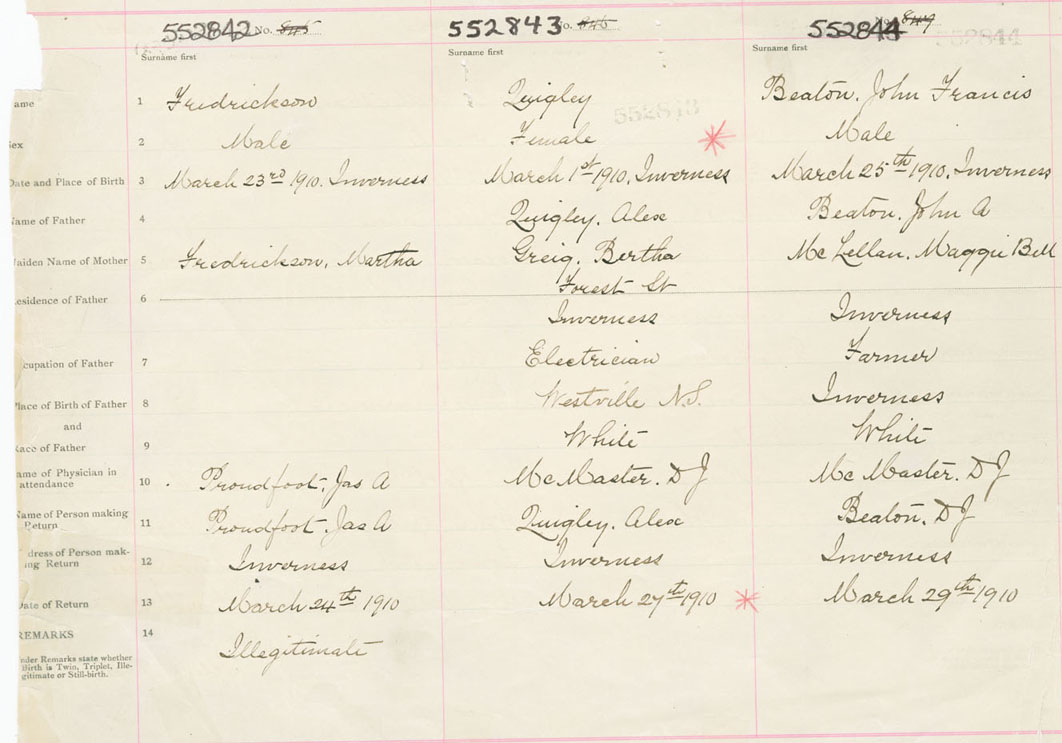 552842 No. 845 552843 No. 846 552844 No. 847
552844
Surname first Surname first Surname first
ame 1 Fredrickson Quigley Beaton, John Francis
552843
ex 2 Male Female Male
Date and Place of Birth 3 March 23rd 1910, Inverness March 1st 1910, Inverness March 25th 1910, Inverness
Name of Father 4 Quigley, Alex Beaton, John A
aiden Name of Mother 5 Fredrickson, Martha Greig, Bertha Mc Lellan, Maggie Bell
Forest St
esidence of Father 6 Inverness Inverness
cupation of Father 7 Electrician Farmer
Place of Birth of Father 8 Westville N.S. Inverness
and
Race of Father 9 White White
ame of Physician in
attendance 10 Proudfoot, Jas A McMaster, D J Mc Master, D J
Name of Person making
Return 11 Proudfoot, Jas A Quigley, Alex Beaton, D J
dress of Person mak-
ing Return 12 Inverness Inverness Inverness
Date of Return 13 March 24th 1910 March 27th 1910 March 29th 1910
REMARKS 14 Illegitimate
nder Remarks state whether
Birth is Twin, Triplet, Ille-
gitimate or Still-birth.